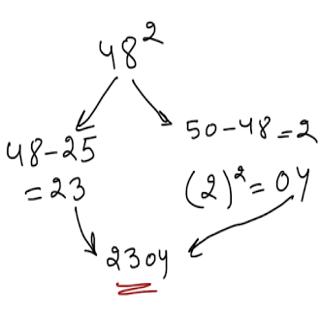 48²
48-25
=23
50-48=2
(2)²=04
2304